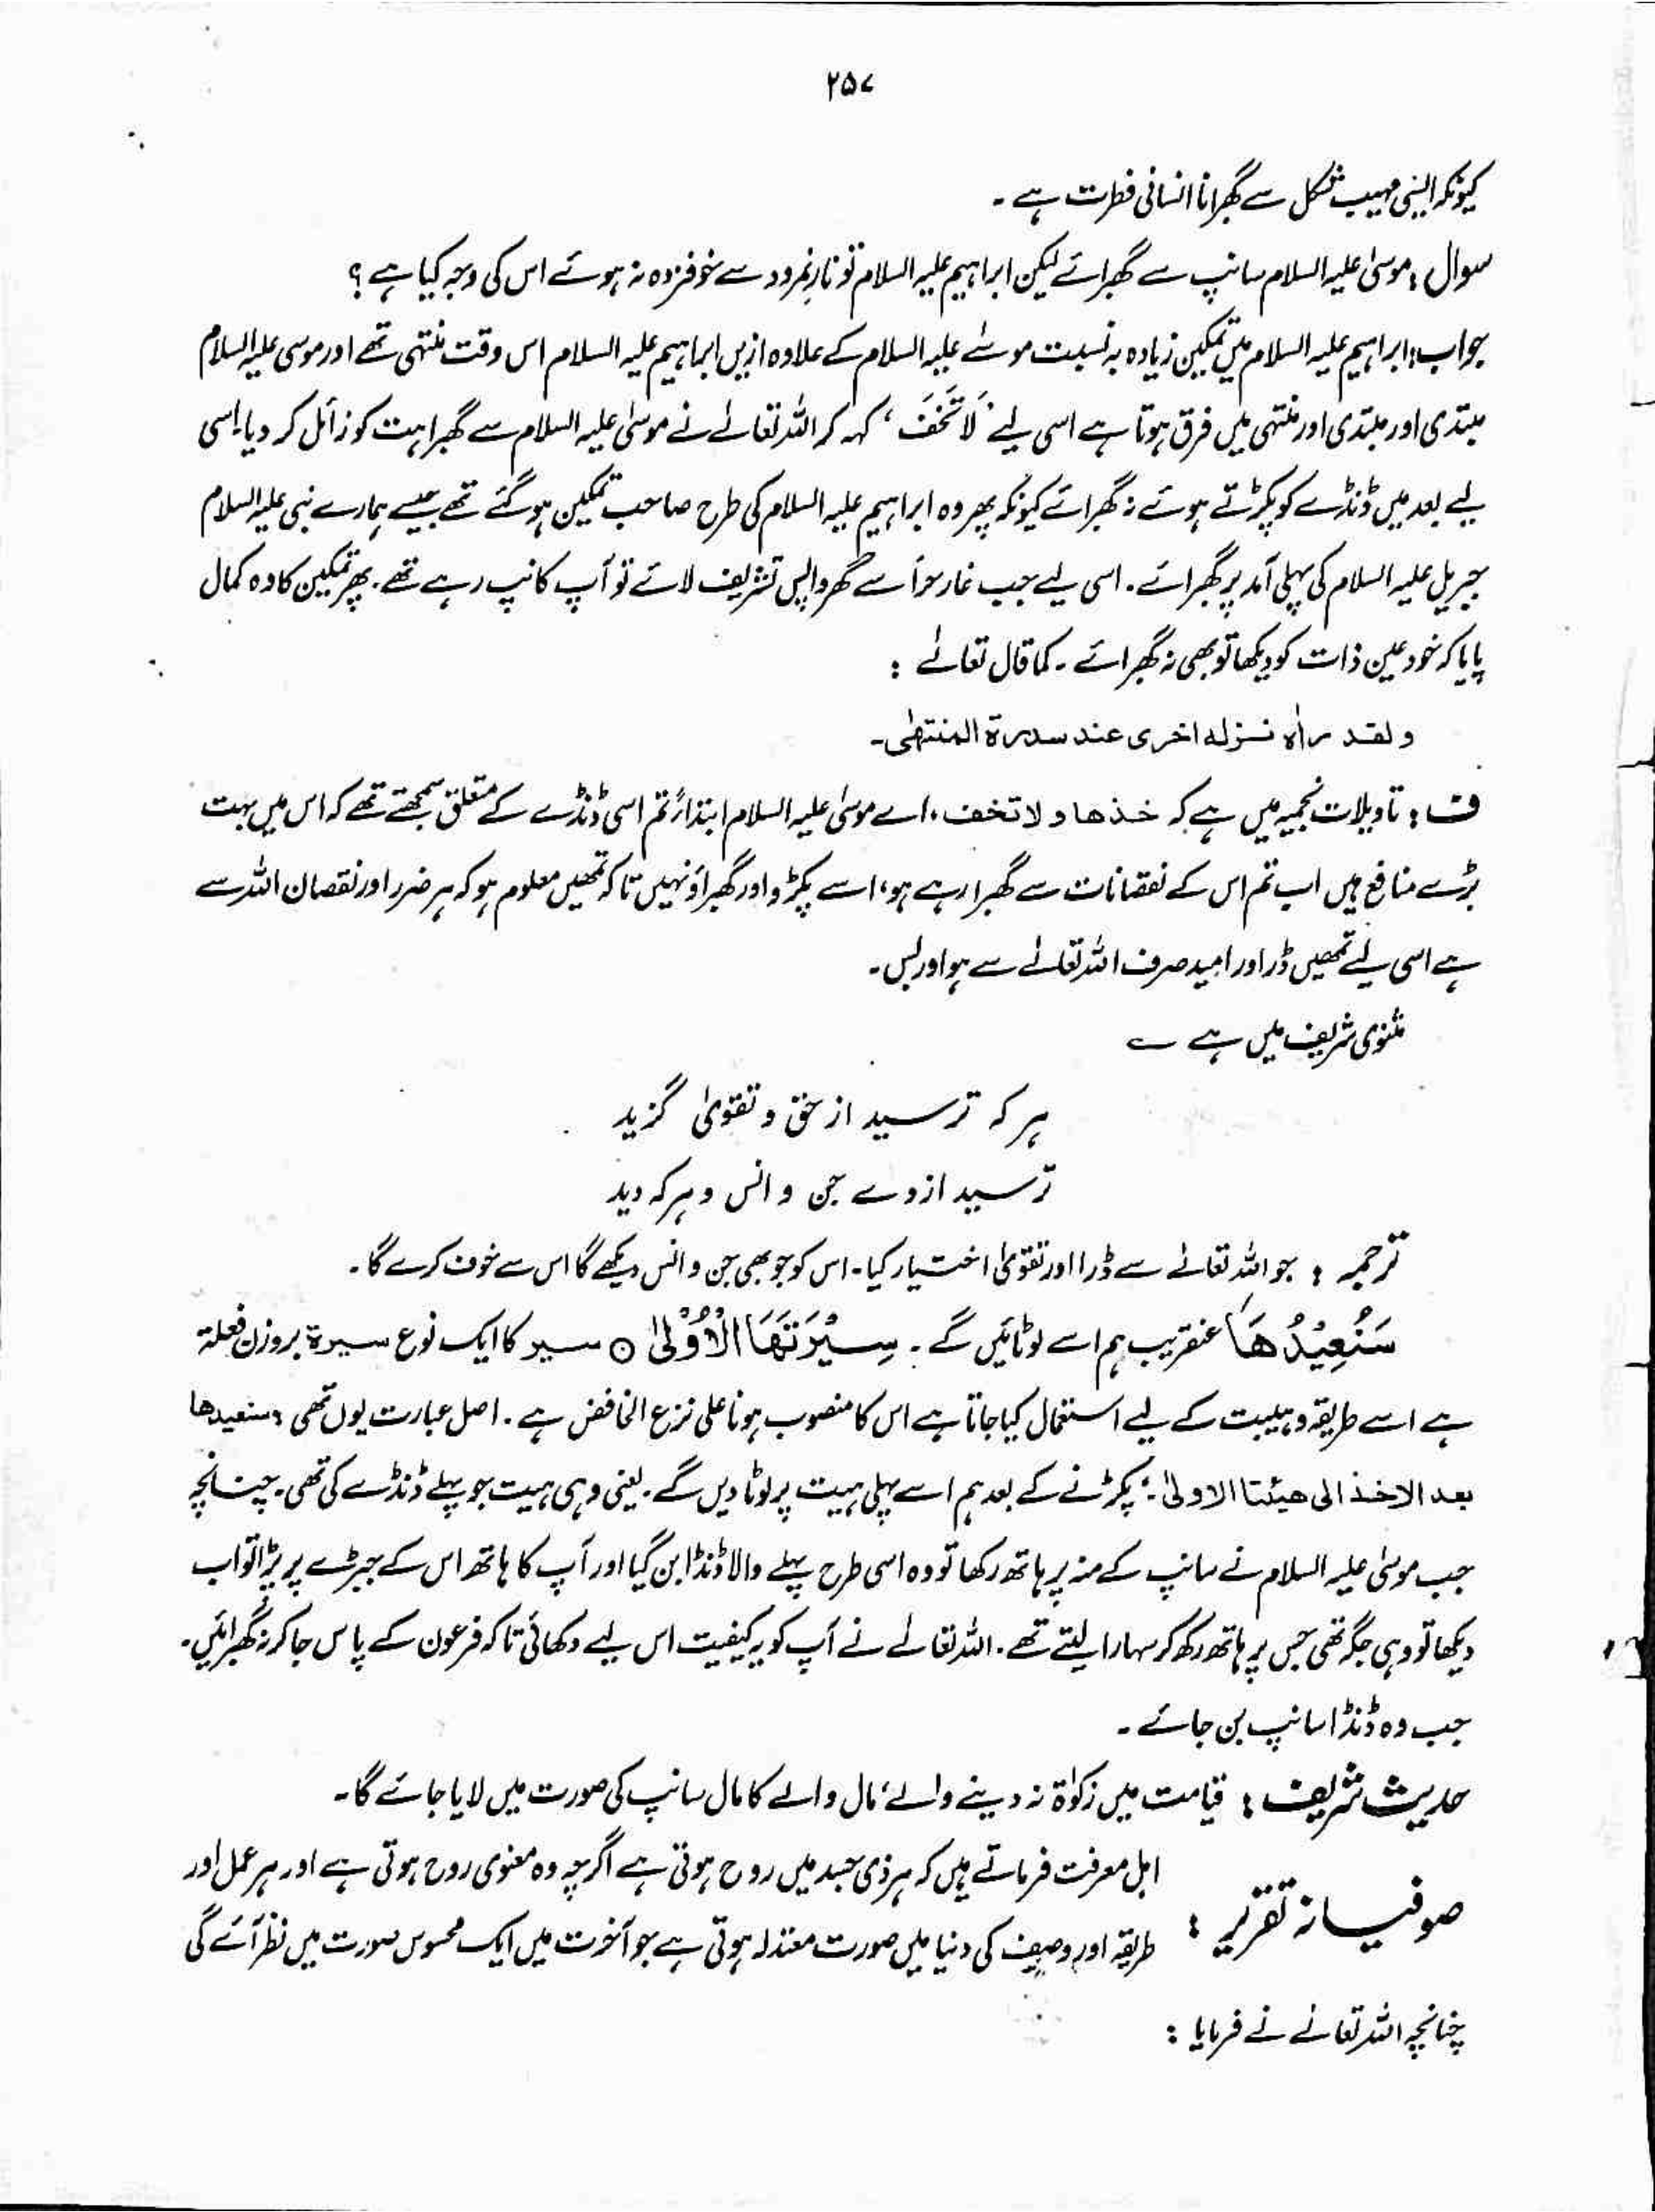 ۲۵۷
کیونکہ ایسی مہیب شکل سے گھبرانا انسانی فطرت ہے ۔
سوال : موسیٰ علیہ السلام سانپ سے گھبرائے لیکن ابراہیم علیہ السلام تو نارِ نمرود سے خوفزدہ نہ ہوئے اس کی وجہ کیا ہے ؟
جواب : ابراہیم علیہ السلام میں تمکین زیادہ بہ نسبت موسٰے علیہ السلام کے علاوہ ازیں ابراہیم علیہ السلام اس وقت منتہی تھے اور موسی علیہ السلام
مبتدی اور مبتدی اور منتہی میں فرق ہوتا ہے اسی لیے 'لَا تَخَفْ' کہہ کر اللہ تعالےٰ نے موسٰی علیہ السلام سے گھبراہٹ کو زائل کر دیا۔ اسی
لیے بعد میں ڈنڈے کو پکڑتے ہوئے نہ گھبرائے کیونکہ پھر وہ ابراہیم علیہ السلام کی طرح صاحب تمکین ہو گئے تھے جیسے ہمارے نبی علیہ السلام
جبریل علیہ السلام کی پہلی آمد پر گھبرائے ۔ اسی لیے جب غار حرا سے گھر واپس تشریف لائے تو آپ کانپ رہے تھے ۔ پھر تمکین کا وہ کمال
پایا کہ خود عین ذات کو دیکھا تو بھی نہ گھبرائے ۔ کما قال تعالےٰ :
و لقد راٰہ نزلہ اخری عند سدرۃ المنتھٰی۔
ف : تاویلات نجمیہ میں ہے کہ خذھا و لا تخف ، اے موسیٰ علیہ السلام ابتداءً تم اسی ڈنڈے کے متعلق سمجھتے تھے کہ اس میں بہت
بڑے منافع ہیں اب تم اس کے نقصانات سے گھبرا رہے ہو، اسے پکڑو اور گھبراؤ نہیں تاکہ تمھیں معلوم ہو کہ ہر ضرر اور نقصان اللہ سے
ہے اسی لیے تمھیں ڈر اور امید صرف اللہ تعالےٰ سے ہو اور بس ۔
مثنوی شریف میں ہے ؎
ہر کہ ترسید از حق و تقویٰ گزید
ترسید ازوے جن و انس و ہر کہ دید
ترجمہ : جو اللہ تعالےٰ سے ڈرا اور تقویٰ اختیار کیا ۔ اس کو جو بھی جن و انس دیکھے گا اس سے خوف کرے گا ۔
سَنُعِيْدُهَا عنقریب ہم اسے لوٹائیں گے ۔ سِيْرَتَهَا الْاُوْلٰى ○ سیر کا ایک نوع سیرۃ بروزن فعلۃ
ہے اسے طریقہ و ہیبت کے لیے استعمال کیا جاتا ہے اس کا منصوب ہونا علی نزع الخافض ہے ۔ اصل عبارت یوں تھی : سنعیدھا
بعد الاخذ الی ھیئتا الاولیٰ : پکڑنے کے بعد ہم اسے پہلی ہیبت پر لوٹا دیں گے ۔ یعنی وہی ہیبت جو پہلے ڈنڈے کی تھی ۔ چنانچہ
جب موسیٰ علیہ السلام نے سانپ کے منہ پر ہاتھ رکھا تو وہ اسی طرح پہلے والا ڈنڈا بن گیا اور آپ کا ہاتھ اس کے جبڑے پر پڑا تو اب
دیکھا تو وہی جگہ تھی جس پر ہاتھ رکھ کر سہارا لیتے تھے ۔ اللہ تعالےٰ نے آپ کو یہ کیفیت اس لیے دکھائی تاکہ فرعون کے پاس جا کر نہ گھبرائیں۔
جب وہ ڈنڈا سانپ بن جائے ۔
حدیث شریف : قیامت میں زکوٰۃ نہ دینے والے مال والے کا مال سانپ کی صورت میں لایا جائے گا ۔
اہل معرفت فرماتے ہیں کہ ہر ذی جسد میں روح ہوتی ہے اگرچہ وہ معنوی روح ہوتی ہے اور ہر عمل اور
صوفیانہ تقریر :
طریقہ اور وصف کی دنیا میں صورت معتدلہ ہوتی ہے جو آخرت میں ایک محسوس صورت میں نظر آئے گی
چنانچہ اللہ تعالےٰ نے فرمایا :